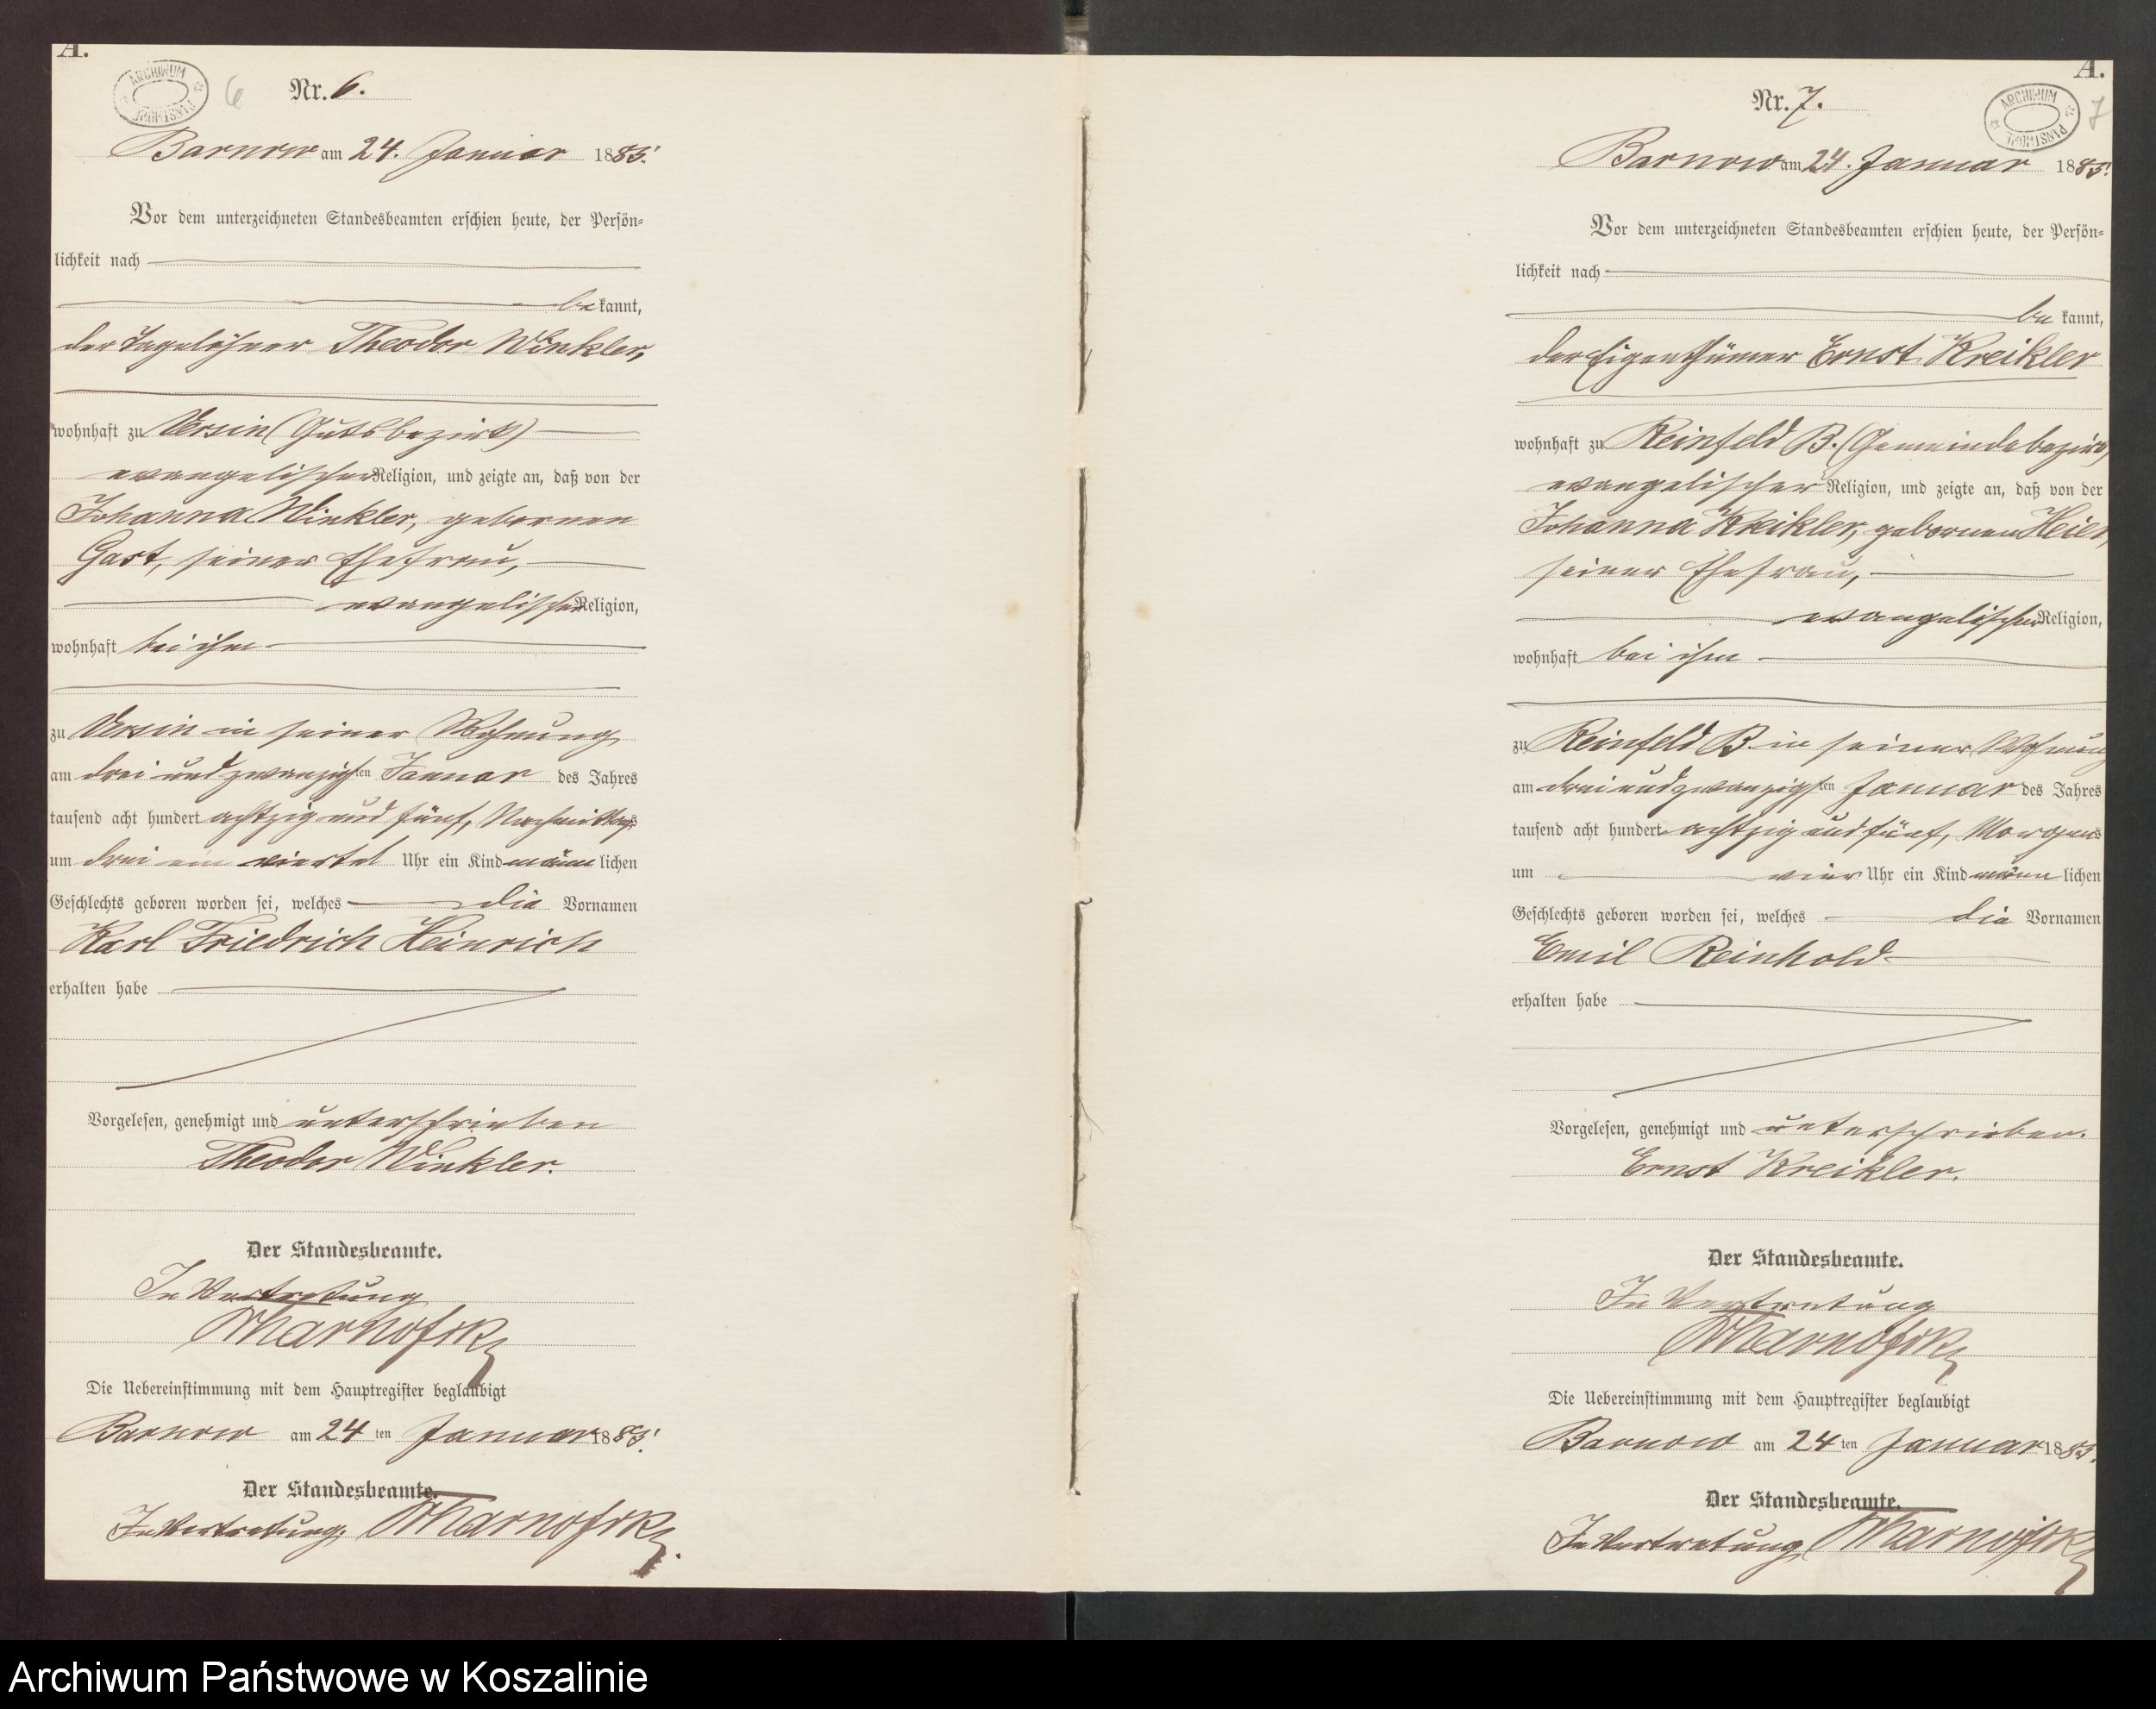 A.
ARCHIWUM PAŃSTWOWE
6
Nr. 6.
Barnow am 24. Januar 1885.
Vor dem unterzeichneten Standesbeamten erschien heute, der Persön-
lichkeit nach
be kannt,
der Tagelöhner Theodor Winkler,
wohnhaft zu Versin (Gutsbezirk)
evangelischer Religion, und zeigte an, daß von der
Johanna Winkler, gebornen
Gast, seiner Ehefrau,
evangelischer Religion,
wohnhaft bei ihm
zu Versin in seiner Wohnung
am drei und zwanzigsten Januar des Jahres
tausend acht hundert achtzig und fünf, Nachmittags
um drei ein viertel Uhr ein Kind männ lichen
Geschlechts geboren worden sei, welches die Vornamen
Karl Friedrich Heinrich
erhalten habe
Vorgelesen, genehmigt und unterschrieben
Theodor Winkler.
Der Standesbeamte.
In Vertretung
Die Uebereinstimmung mit dem Hauptregister beglaubigt
Barnow am 24 ten Januar 1885.
Der Standesbeamte.
In Vertretung.
A.
ARCHIWUM PAŃSTWOWE
7
Nr. 7.
Barnow am 24. Januar 1885.
Vor dem unterzeichneten Standesbeamten erschien heute, der Persön-
lichkeit nach
be kannt,
der Eigenthümer Ernst Kreikler
wohnhaft zu Reinfeld B. (Gemeindebezirk)
evangelischer Religion, und zeigte an, daß von der
Johanna Kreikler, gebornen
seiner Ehefrau,
evangelischer Religion,
wohnhaft bei ihm
zu Reinfeld B in seiner Wohnung
am drei und zwanzigsten Januar des Jahres
tausend acht hundert achtzig und fünf, Morgens
um vier Uhr ein Kind männ lichen
Geschlechts geboren worden sei, welches die Vornamen
Emil Reinhold
erhalten habe
Vorgelesen, genehmigt und unterschrieben.
Ernst Kreikler.
Der Standesbeamte.
In Vertretung
Die Uebereinstimmung mit dem Hauptregister beglaubigt
Barnow am 24 ten Januar 1885.
Der Standesbeamte.
In Vertretung
Archiwum Państwowe w Koszalinie